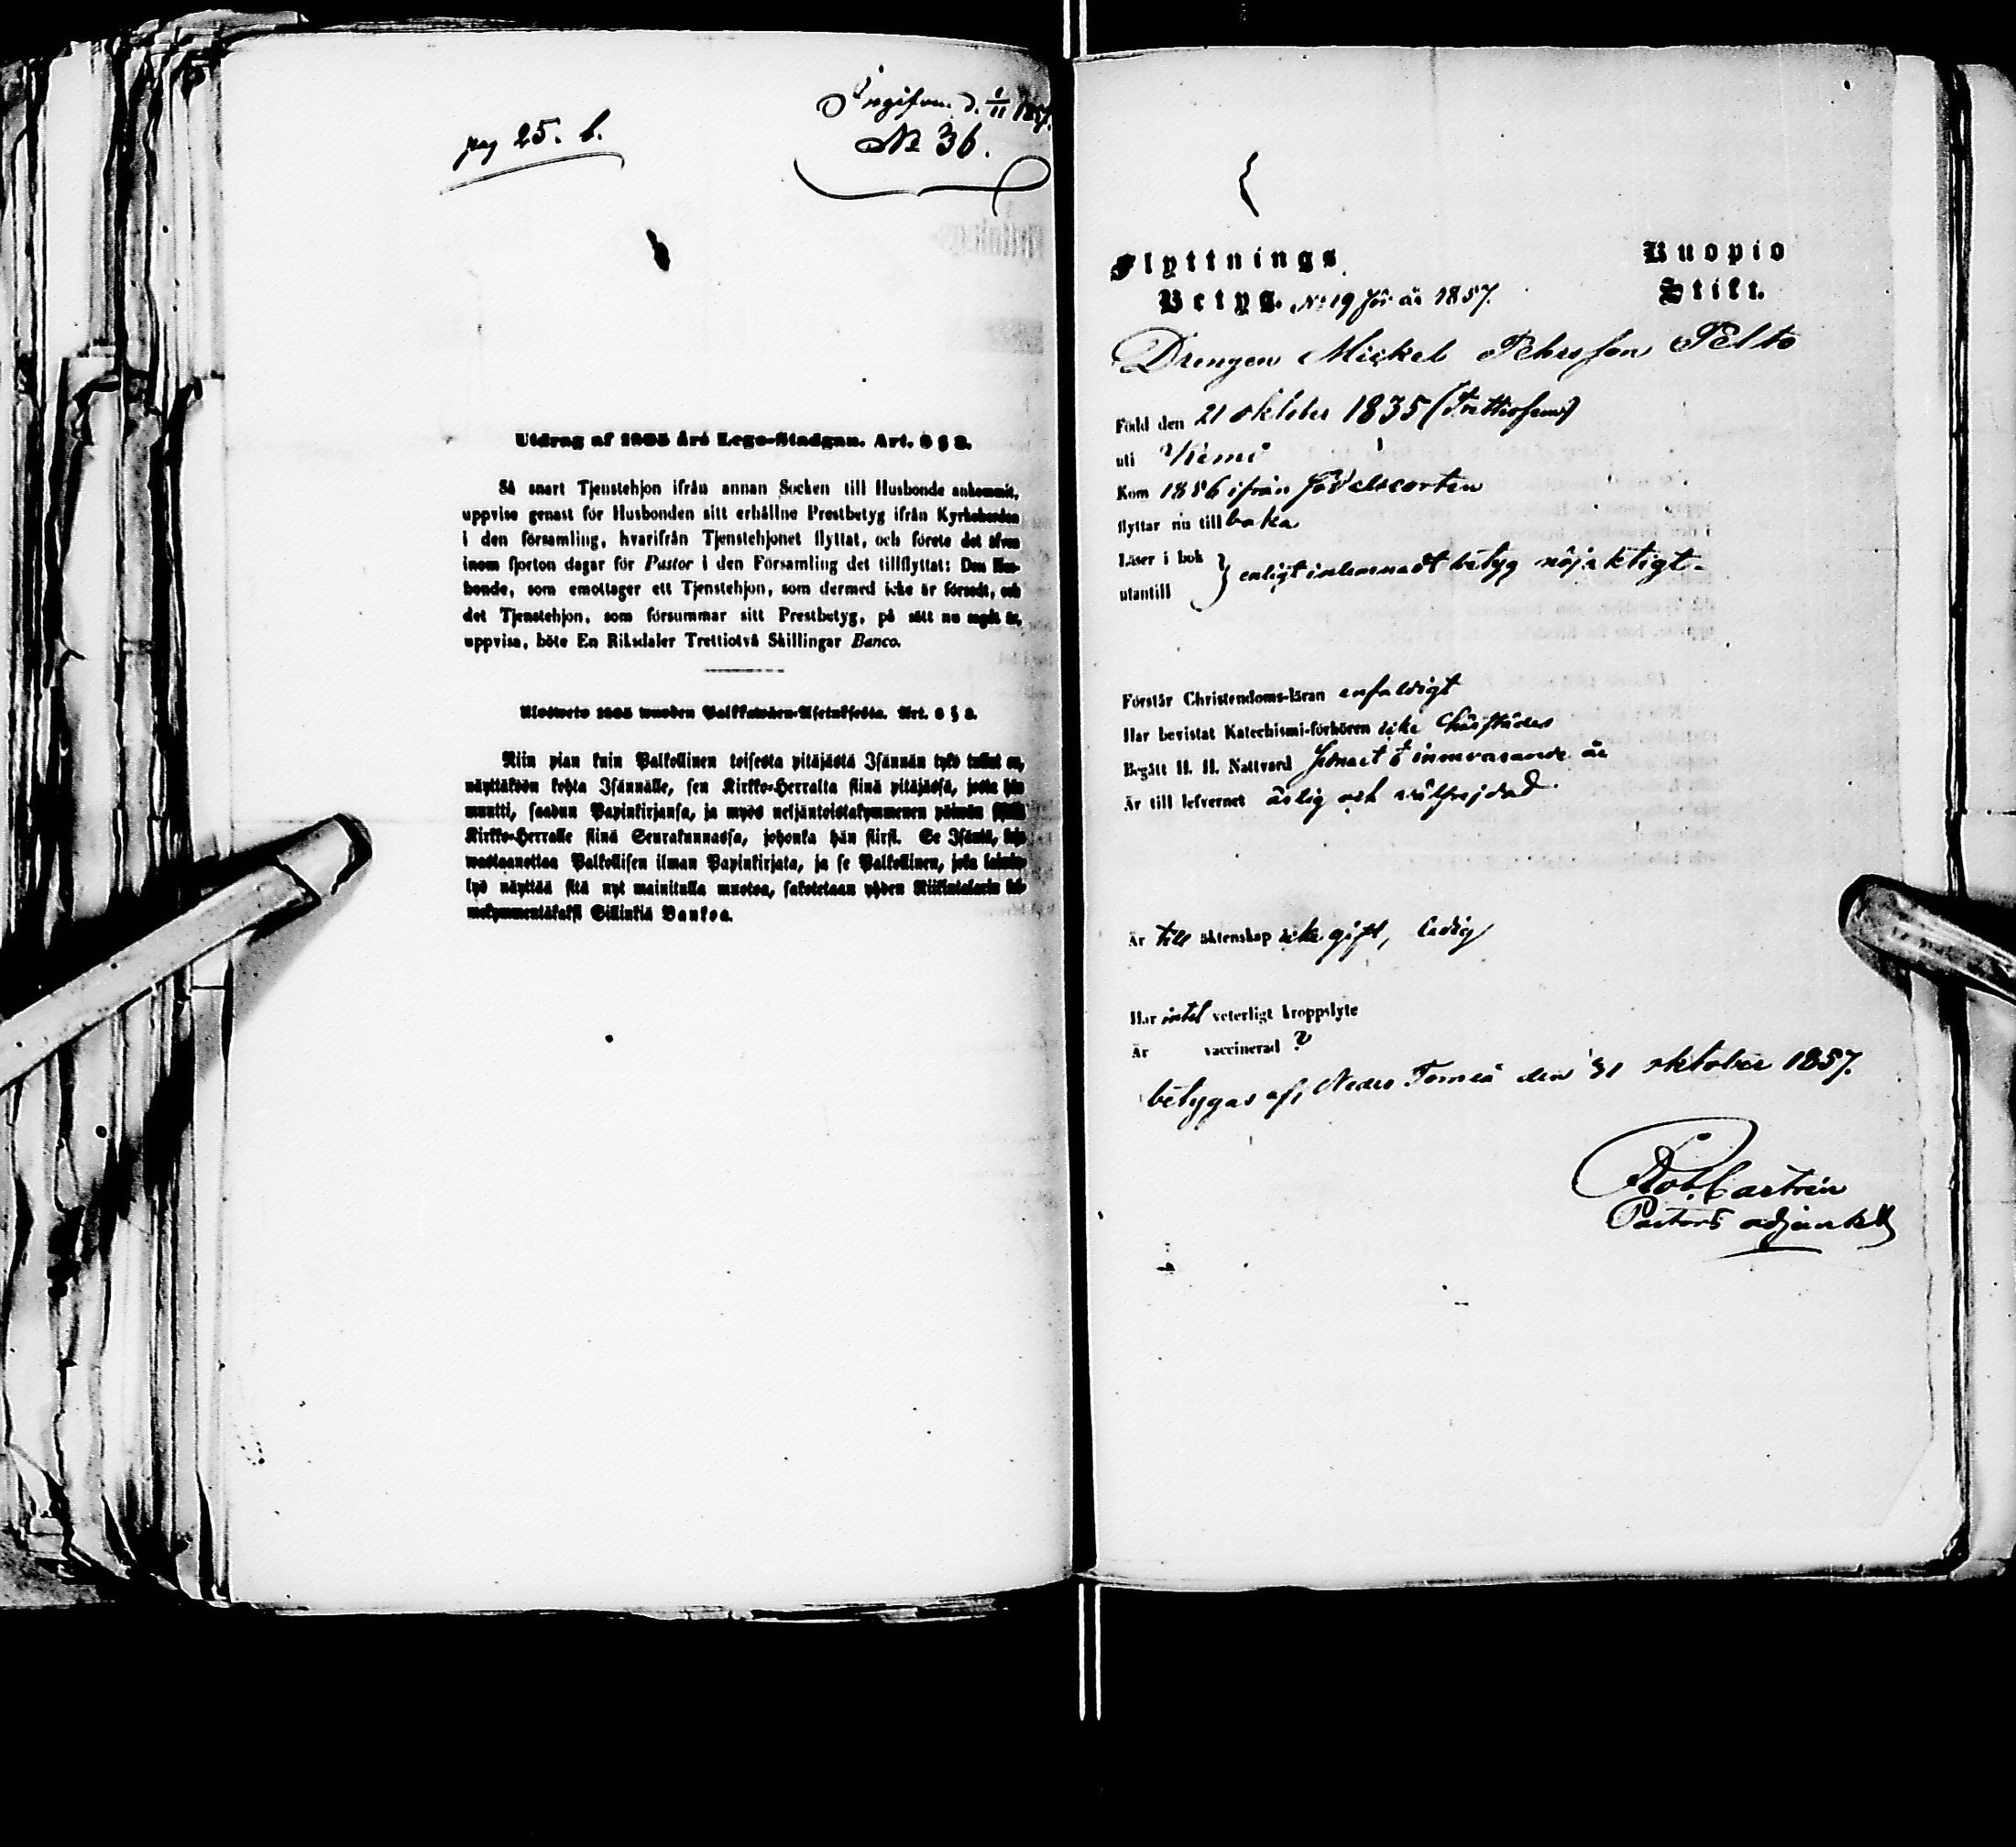 pag 25. b.
Ingifven d. 1/11 1857.
No 36.
Utdrag af 1805 års Lego-Stadgan. Art. 6 § 3.
Så snart Tjenstehjon ifrån annan Socken till Husbonde ankommit,
uppvise genast för Husbonden sitt erhållne Prestbetyg ifrån Kyrkoherden
i den församling, hvarifrån Tjenstehjonet flyttat, och förete det äfven
inom fjorton dagar för Pastor i den Församling det tillflyttat: Den Hus-
bonde, som emottager ett Tjenstehjon, som dermed icke är försedt, och
det Tjenstehjon, som försummar sitt Prestbetyg, på sätt nu sagdt är,
uppvisa, böte En Riksdaler Trettiotvå Skillingar Banco.
Ulosweto 1805 wuoden Palkkawäen-Asetuksesta. Art. 6 § 3.
Niin pian kuin Palkollinen toisesta pitäjästä Isännän tykö tullut on,
näyttäköön kohta Isännälle, sen Kirkko-Herralta siinä pitäjässä, josta hän
muutti, saadun Papinkirjansa, ja myös neljäntoistakymmenen päiwän
Kirkko-Herralle siinä Seurakunnassa, johonka hän siirsi. Se Isäntä, joka
wastaanottaa Palkollisen ilman Papinkirjata, ja se Palkollinen, joka laimin-
lyö näyttää sitä nyt mainitulla muotoa, sakotetaan yhden Riikintalarin kol-
mekymmentäkaksi Sillinkiä Bankoa.
Flyttnings Kuopio
Betyg. No 19 för år 1857. Stift.
Drengen Mickel Pehrsson Pelto
Född den 21 oktober 1835 (Trettiofem)
uti Kemi
Kom 1856 ifrån födelseorten
flyttar nu tillbaka
Läser i bok
utantill } enligt inlemnadt betyg nöjaktigt.
Förstår Christendoms-läran enfaldigt
Har bevistat Katechismi-förhören icke härstädes
Begått H. H. Nattvard senast innevarande år
Är till lefvernet ärlig och välfrejdad
Är till äktenskap icke gift, ledig
Har intet veterligt kroppslyte
Är vaccinerad ?
betygas af, Neder Torneå den 31 oktober 1857.
Rob. Castrén
Pastors adjunkt